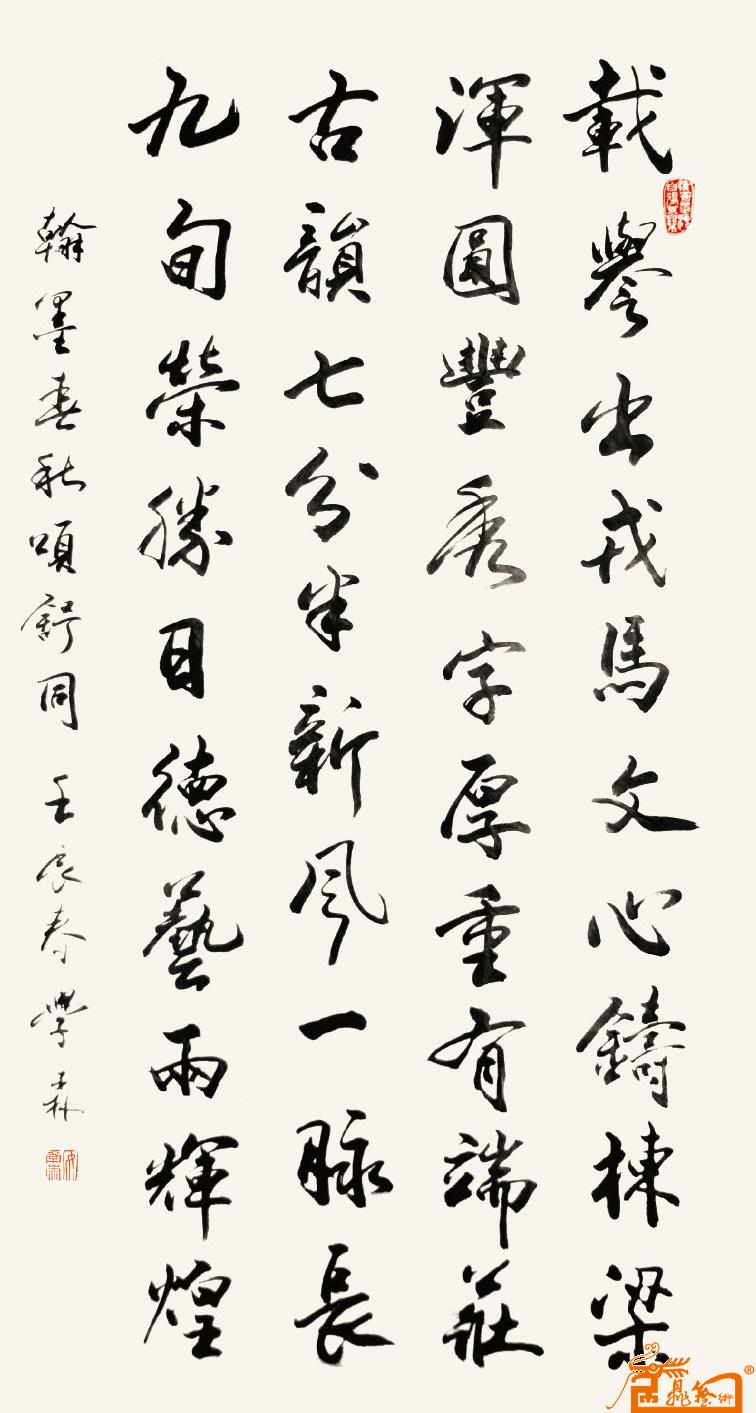 載譽出戎馬文心鑄棟梁
渾圓豐秀字厚重有端莊
古韻七分半新風一脉長
九旬榮勝目德藝兩輝煌
翰墨春秋頌舒同 壬辰春 學森